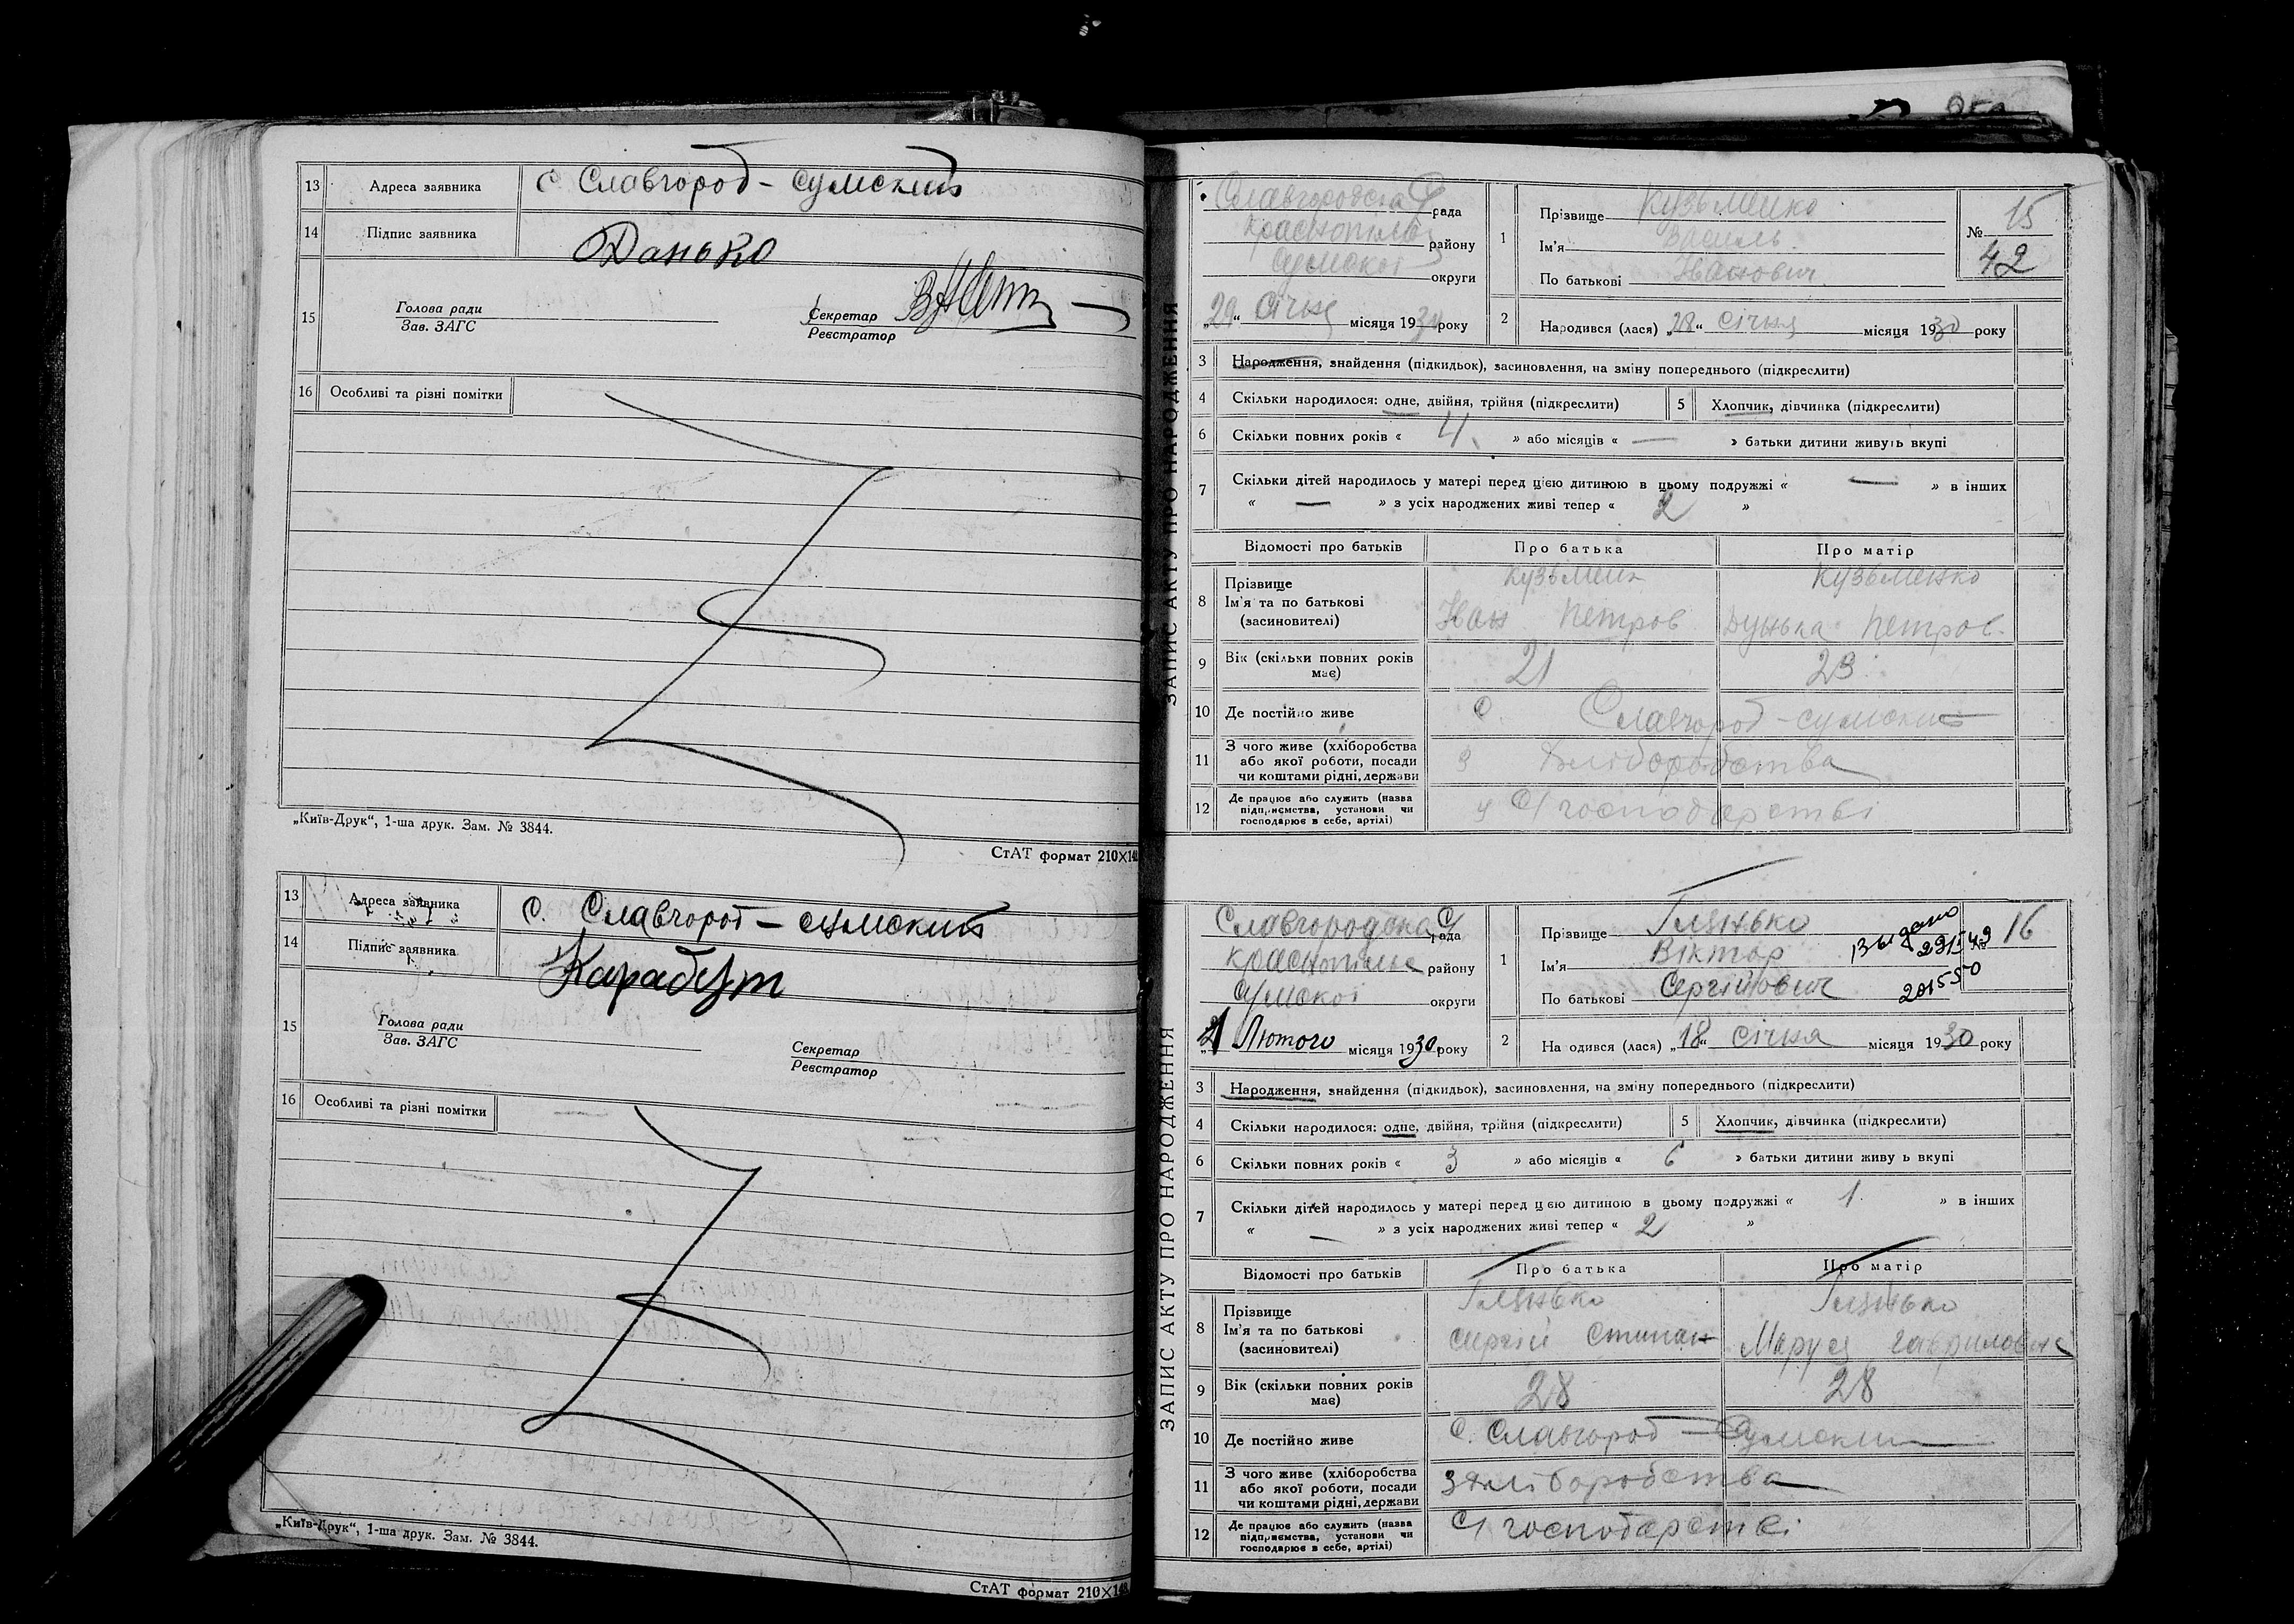 13 Адреса заявника с Славгород - сумский
14 Підпис заявника Данько
15 Голова ради Секретар
Зав. ЗАГС Реєстратор
16 Особливі та різні помітки
„Київ-Друк“, 1-ша друк. Зам. № 3844.
СтАТ формат 210×148
13 Адреса заявника с. Славгород - сумский
14 Підпис заявника Карабут
15 Голова ради Секретар
Зав. ЗАГС Реєстратор
16 Особливі та різні помітки
„Київ-Друк“, 1-ша друк. Зам. № 3844.
СтАТ формат 210×148
ЗАПИС АКТУ ПРО НАРОДЖЕННЯ
Славгородська с/рада
Краснопільс району
сумскої округи
„29“ Січня місяця 1930 року
1 Прізвище Кузьменко
Ім'я Василь
По батькові Іванович
№ 15
42
2 Народився (лася) „28“ Січня місяця 1930 року
3 Народження, знайдення (підкидьок), засиновлення, на зміну попереднього (підкреслити)
4 Скільки народилося: одне, двійня, трійня (підкреслити) 5 Хлопчик, дівчинка (підкреслити)
6 Скільки повних років « 4 » або місяців « — » батьки дитини живуть вкупі
7 Скільки дітей народилось у матері перед цією дитиною в цьому подружжі « — » в інших
« — » з усіх народжених живі тепер « 2 »
Відомості про батьків Про батька Про матір
8 Прізвище Кузьменк Кузьменко
Ім'я та по батькові Іван Петров Дунька Петров.
(засиновителі)
9 Вік (скільки повних років має) 21 23
10 Де постійно живе с. Славгород - сумский
11 З чого живе (хліборобства або якої роботи, посади чи коштами рідні, держави з хліборобства
12 Де працює або служить (назва підприємства, установи чи господарює в себе, артілі) у с/господарстві
ЗАПИС АКТУ ПРО НАРОДЖЕННЯ
Славгородська с/рада
Краснопільс району
сумскої округи
Лютого місяця 1930 року
1 Прізвище Глянько
Ім'я Віктор
По батькові Сергійович
Выдано
16
2 Народився (лася) „18“ Січня місяця 1930 року
3 Народження, знайдення (підкидьок), засиновлення, на зміну попереднього (підкреслити)
4 Скільки народилося: одне, двійня, трійня (підкреслити) 5 Хлопчик, дівчинка (підкреслити)
6 Скільки повних років « 3 » або місяців « 6 » батьки дитини живу ь вкупі
7 Скільки дітей народилось у матері перед цією дитиною в цьому подружжі « 1. » в інших
« — » з усіх народжених живі тепер « 2 »
Відомості про батьків Про батька Про матір
8 Прізвище Глянько Глянько
Ім'я та по батькові Сергій Стипан Маруся Гавриловна
(засиновителі)
9 Вік (скільки повних років має) 28 28
10 Де постійно живе с. Славгород - Сумский
11 З чого живе (хліборобства або якої роботи, посади чи коштами рідні, держави з хліборобства
12 Де працює або служить (назва підприємства, установи чи господарює в себе, артілі) с/господарстві